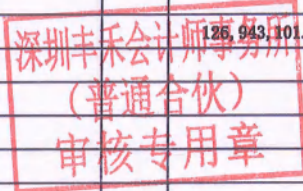 126,943,101.
深圳丰禾会计师事务所
（普通合伙）
审核专用章